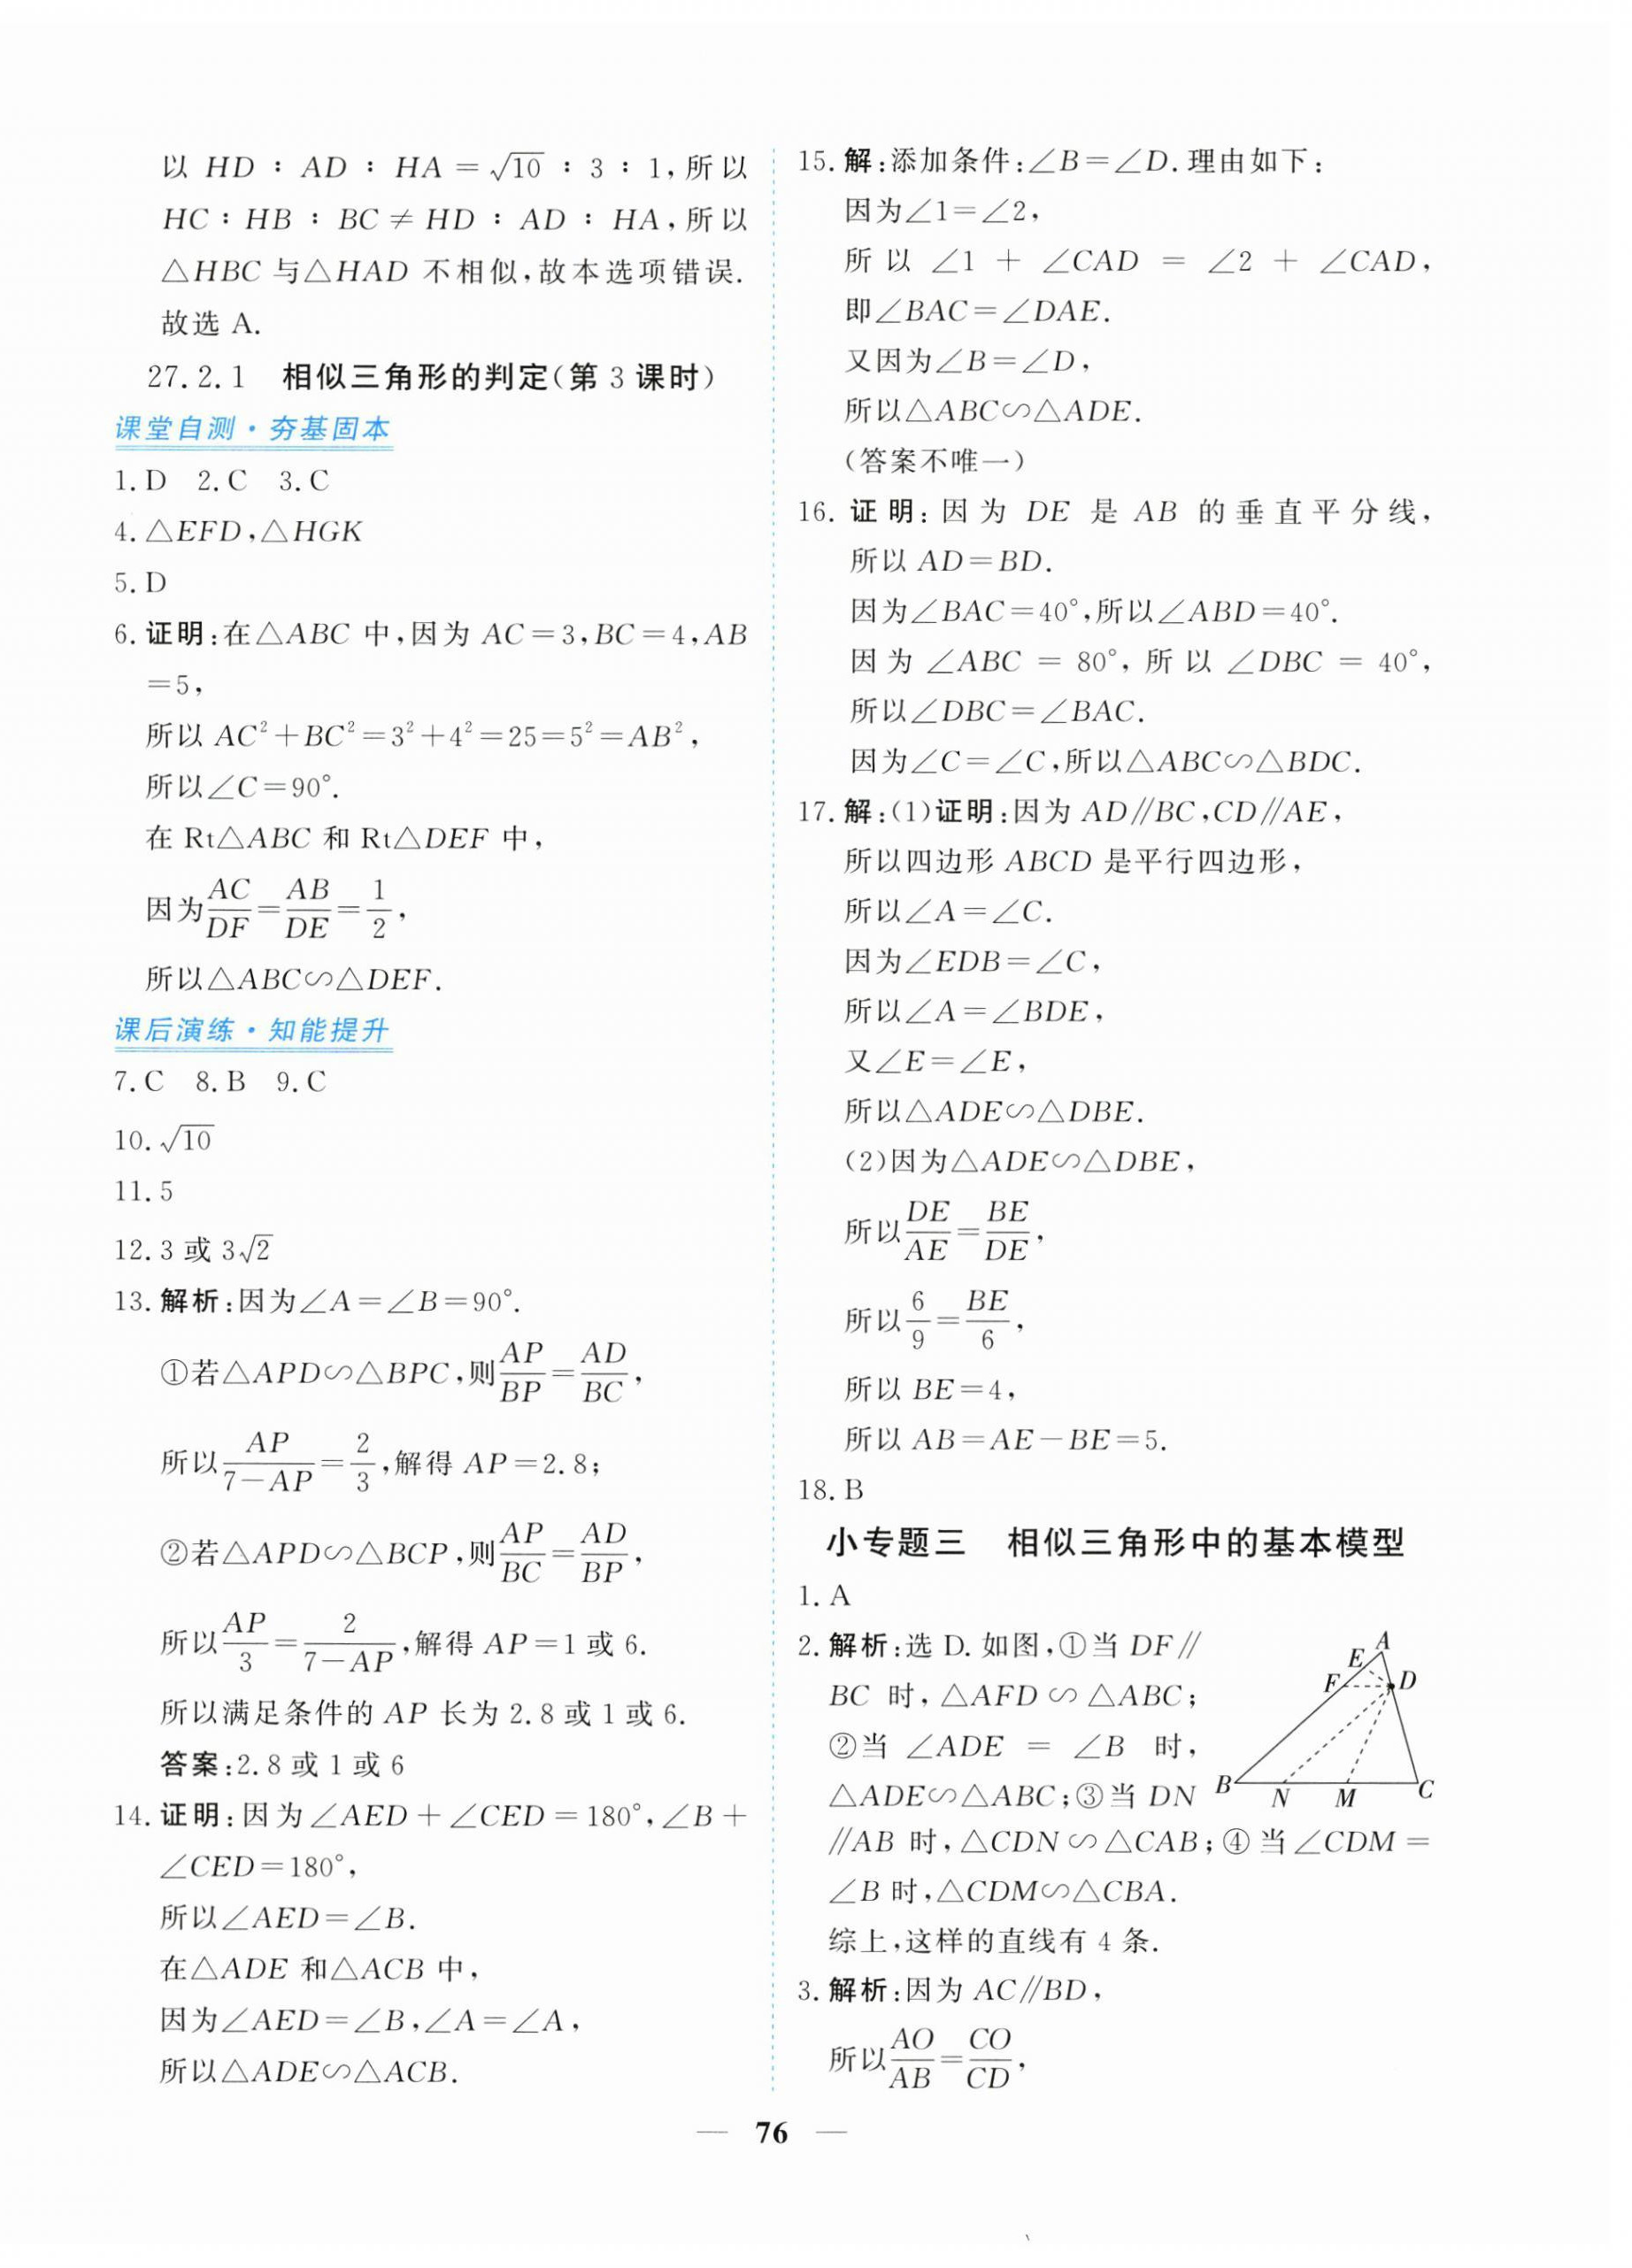 以 HD : AD : HA = √10 : 3 : 1,所以
HC : HB : BC ≠ HD : AD : HA,所以
△HBC 与△HAD 不相似,故本选项错误.
故选 A.
27.2.1 相似三角形的判定(第 3 课时)
课堂自测·夯基固本
1.D 2.C 3.C
4.△EFD,△HGK
5.D
6.证明:在△ABC 中,因为 AC=3,BC=4,AB
=5,
所以 AC²+BC²=3²+4²=25=5²=AB²,
所以∠C=90°.
在 Rt△ABC 和 Rt△DEF 中,
因为AC/DF=AB/DE=1/2,
所以△ABC∽△DEF.
课后演练·知能提升
7.C 8.B 9.C
10.√10
11.5
12.3 或 3√2
13.解析:因为∠A=∠B=90°.
①若△APD∽△BPC,则AP/BP=AD/BC,
所以AP/(7-AP)=2/3,解得 AP=2.8;
②若△APD∽△BCP,则AP/BC=AD/BP,
所以AP/3=2/(7-AP),解得 AP=1 或 6.
所以满足条件的 AP 长为 2.8 或 1 或 6.
答案:2.8 或 1 或 6
14.证明:因为∠AED+∠CED=180°,∠B+
∠CED=180°,
所以∠AED=∠B.
在△ADE 和△ACB 中,
因为∠AED=∠B,∠A=∠A,
所以△ADE∽△ACB.
15.解:添加条件:∠B=∠D.理由如下:
因为∠1=∠2,
所以 ∠1 + ∠CAD = ∠2 + ∠CAD,
即∠BAC=∠DAE.
又因为∠B=∠D,
所以△ABC∽△ADE.
(答案不唯一)
16.证明:因为 DE 是 AB 的垂直平分线,
所以 AD=BD.
因为∠BAC=40°,所以∠ABD=40°.
因为 ∠ABC = 80°,所以 ∠DBC = 40°,
所以∠DBC=∠BAC.
因为∠C=∠C,所以△ABC∽△BDC.
17.解:(1)证明:因为 AD∥BC,CD∥AE,
所以四边形 ABCD 是平行四边形,
所以∠A=∠C.
因为∠EDB=∠C,
所以∠A=∠BDE,
又∠E=∠E,
所以△ADE∽△DBE.
(2)因为△ADE∽△DBE,
所以DE/AE=BE/DE,
所以6/9=BE/6,
所以 BE=4,
所以 AB=AE-BE=5.
18.B
小专题三 相似三角形中的基本模型
1.A
2.解析:选 D.如图,①当 DF∥
BC 时,△AFD∽△ABC;
②当 ∠ADE = ∠B 时,
△ADE∽△ABC;③当 DN
∥AB 时,△CDN∽△CAB;④当∠CDM=
∠B 时,△CDM∽△CBA.
综上,这样的直线有 4 条.
A
E
F
D
B
N
M
C
3.解析:因为 AC∥BD,
所以AO/AB=CO/CD,
— 76 —